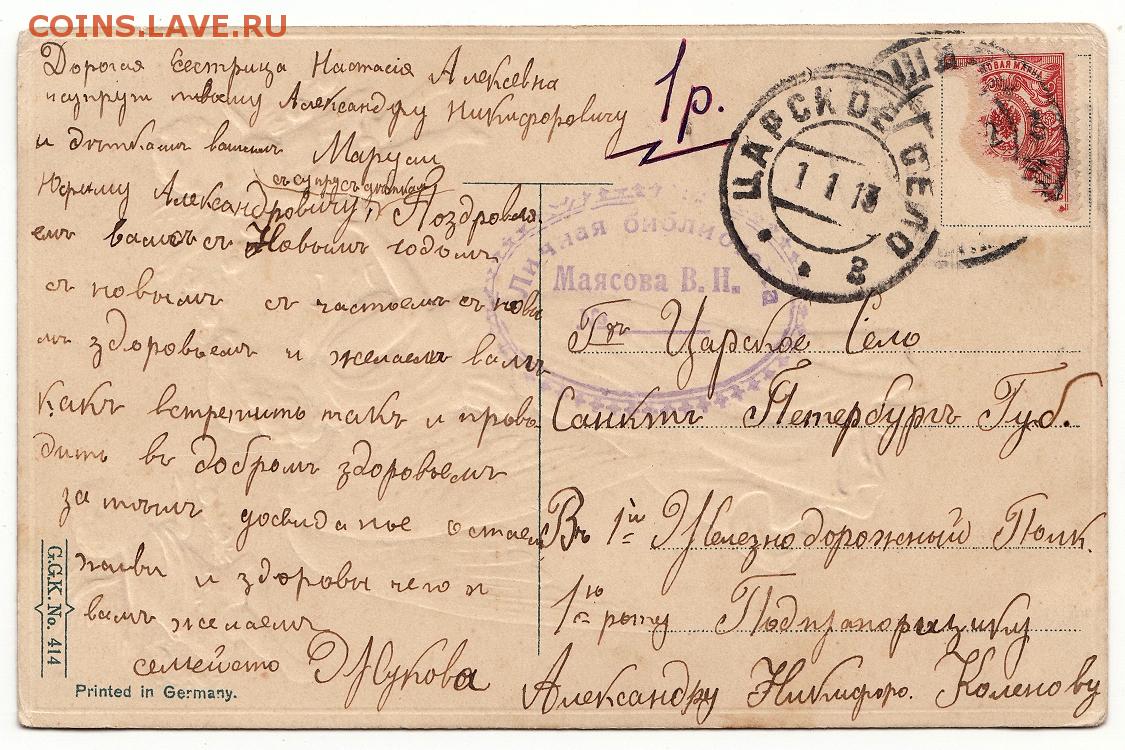 COINS.LAVE.RU
Дорогая Сестрица Настасiя Алексевна
и супругу твоему Александру Никифоровичу
и дѣткамъ вашимъ Маруси
съ супругъ
Юфиму Александровичу, Поздровля
емъ вамъ съ Новымъ годомъ
съ новымъ с частьемъ съ новы
мъ здоровьемъ и желаемъ вамъ
какъ встретить такъ и прово
дить въ добромъ здоровьемъ
за тѣмъ досвиданье остаем
живы и здоровы чего и
вамъ желаемъ
семейсто Жукова
1р.
ЦАРСКОЕ СЕЛО
1 1 13
в
Личная библиотека
Маясова В. Н.
№
Гдъ Царское Село
Санктъ Петербургъ Губ.
Въ 1й Железнодорожный Полк.
1ю роту Подпрапорщику
Александру Никифоро. Коленову
G.G.K. No. 414
Printed in Germany.